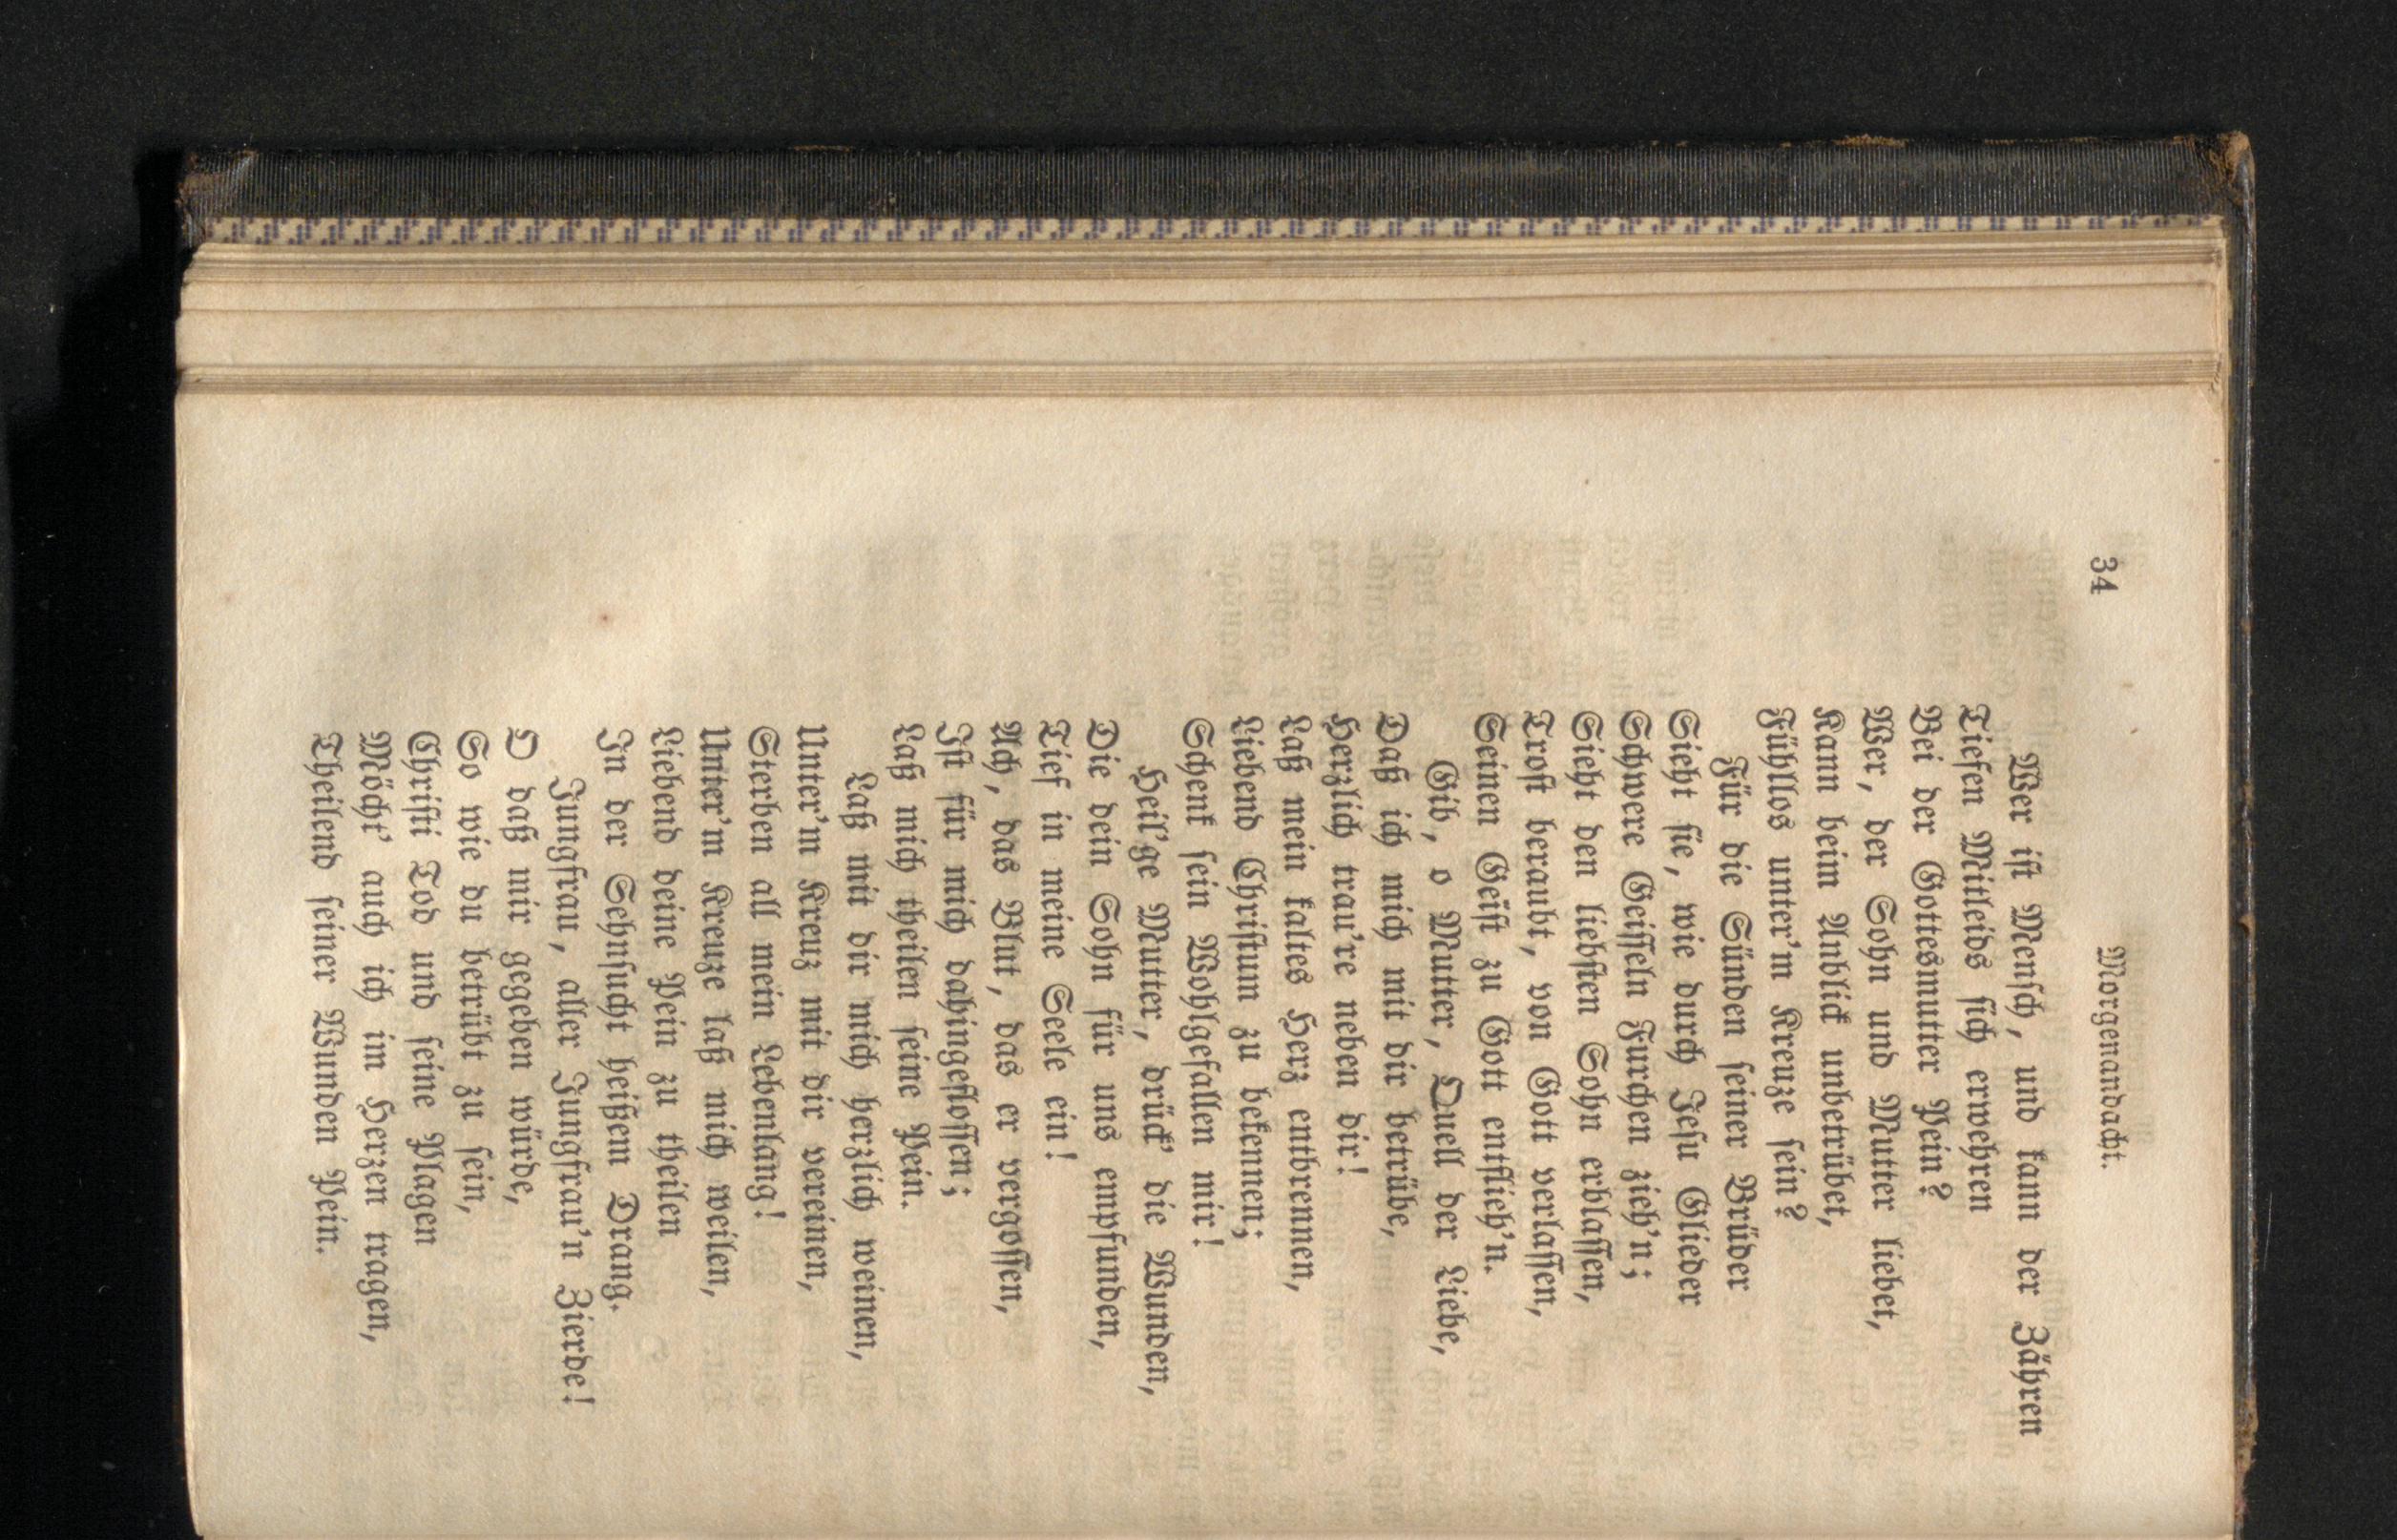 34
Morgenandacht.
Wer iſt Menſch, und kann der Zähren
Tiefen Mitleids ſich erwehren
Bei der Gottesmutter Pein?
Wer, der Sohn und Mutter liebet,
Kann beim Anblick unbetrübet,
Fühllos unter'm Kreuze ſein?
Für die Sünden ſeiner Brüder
Sieht ſie, wie durch Jeſu Glieder
Schwere Geiſſeln Furchen zieh'n;
Sieht den liebſten Sohn erblaſſen,
Troſt beraubt, von Gott verlaſſen,
Seinen Geiſt zu Gott entflieh'n.
Gib, o Mutter, Quell der Liebe,
Daß ich mich mit dir betrübe,
Herzlich trau're neben dir!
Laß mein kaltes Herz entbrennen,
Liebend Chriſtum zu bekennen;
Schenk ſein Wohlgefallen mir!
Heil'ge Mutter, drück' die Wunden,
Die dein Sohn für uns empfunden,
Tief in meine Seele ein!
Ach, das Blut, das er vergoſſen,
Iſt für mich dahingefloſſen;
Laß mich theilen ſeine Pein.
Laß mit dir mich herzlich weinen,
Unter'm Kreuz mit dir vereinen,
Sterben all mein Lebenlang!
Unter'm Kreuze laß mich weilen,
Liebend deine Pein zu theilen
In der Sehnſucht heißem Drang.
Jungfrau, aller Jungfrau'n Zierde!
O daß mir gegeben würde,
So wie du betrübt zu ſein,
Chriſti Tod und ſeine Plagen
Möcht' auch ich im Herzen tragen,
Theilend ſeiner Wunden Pein.